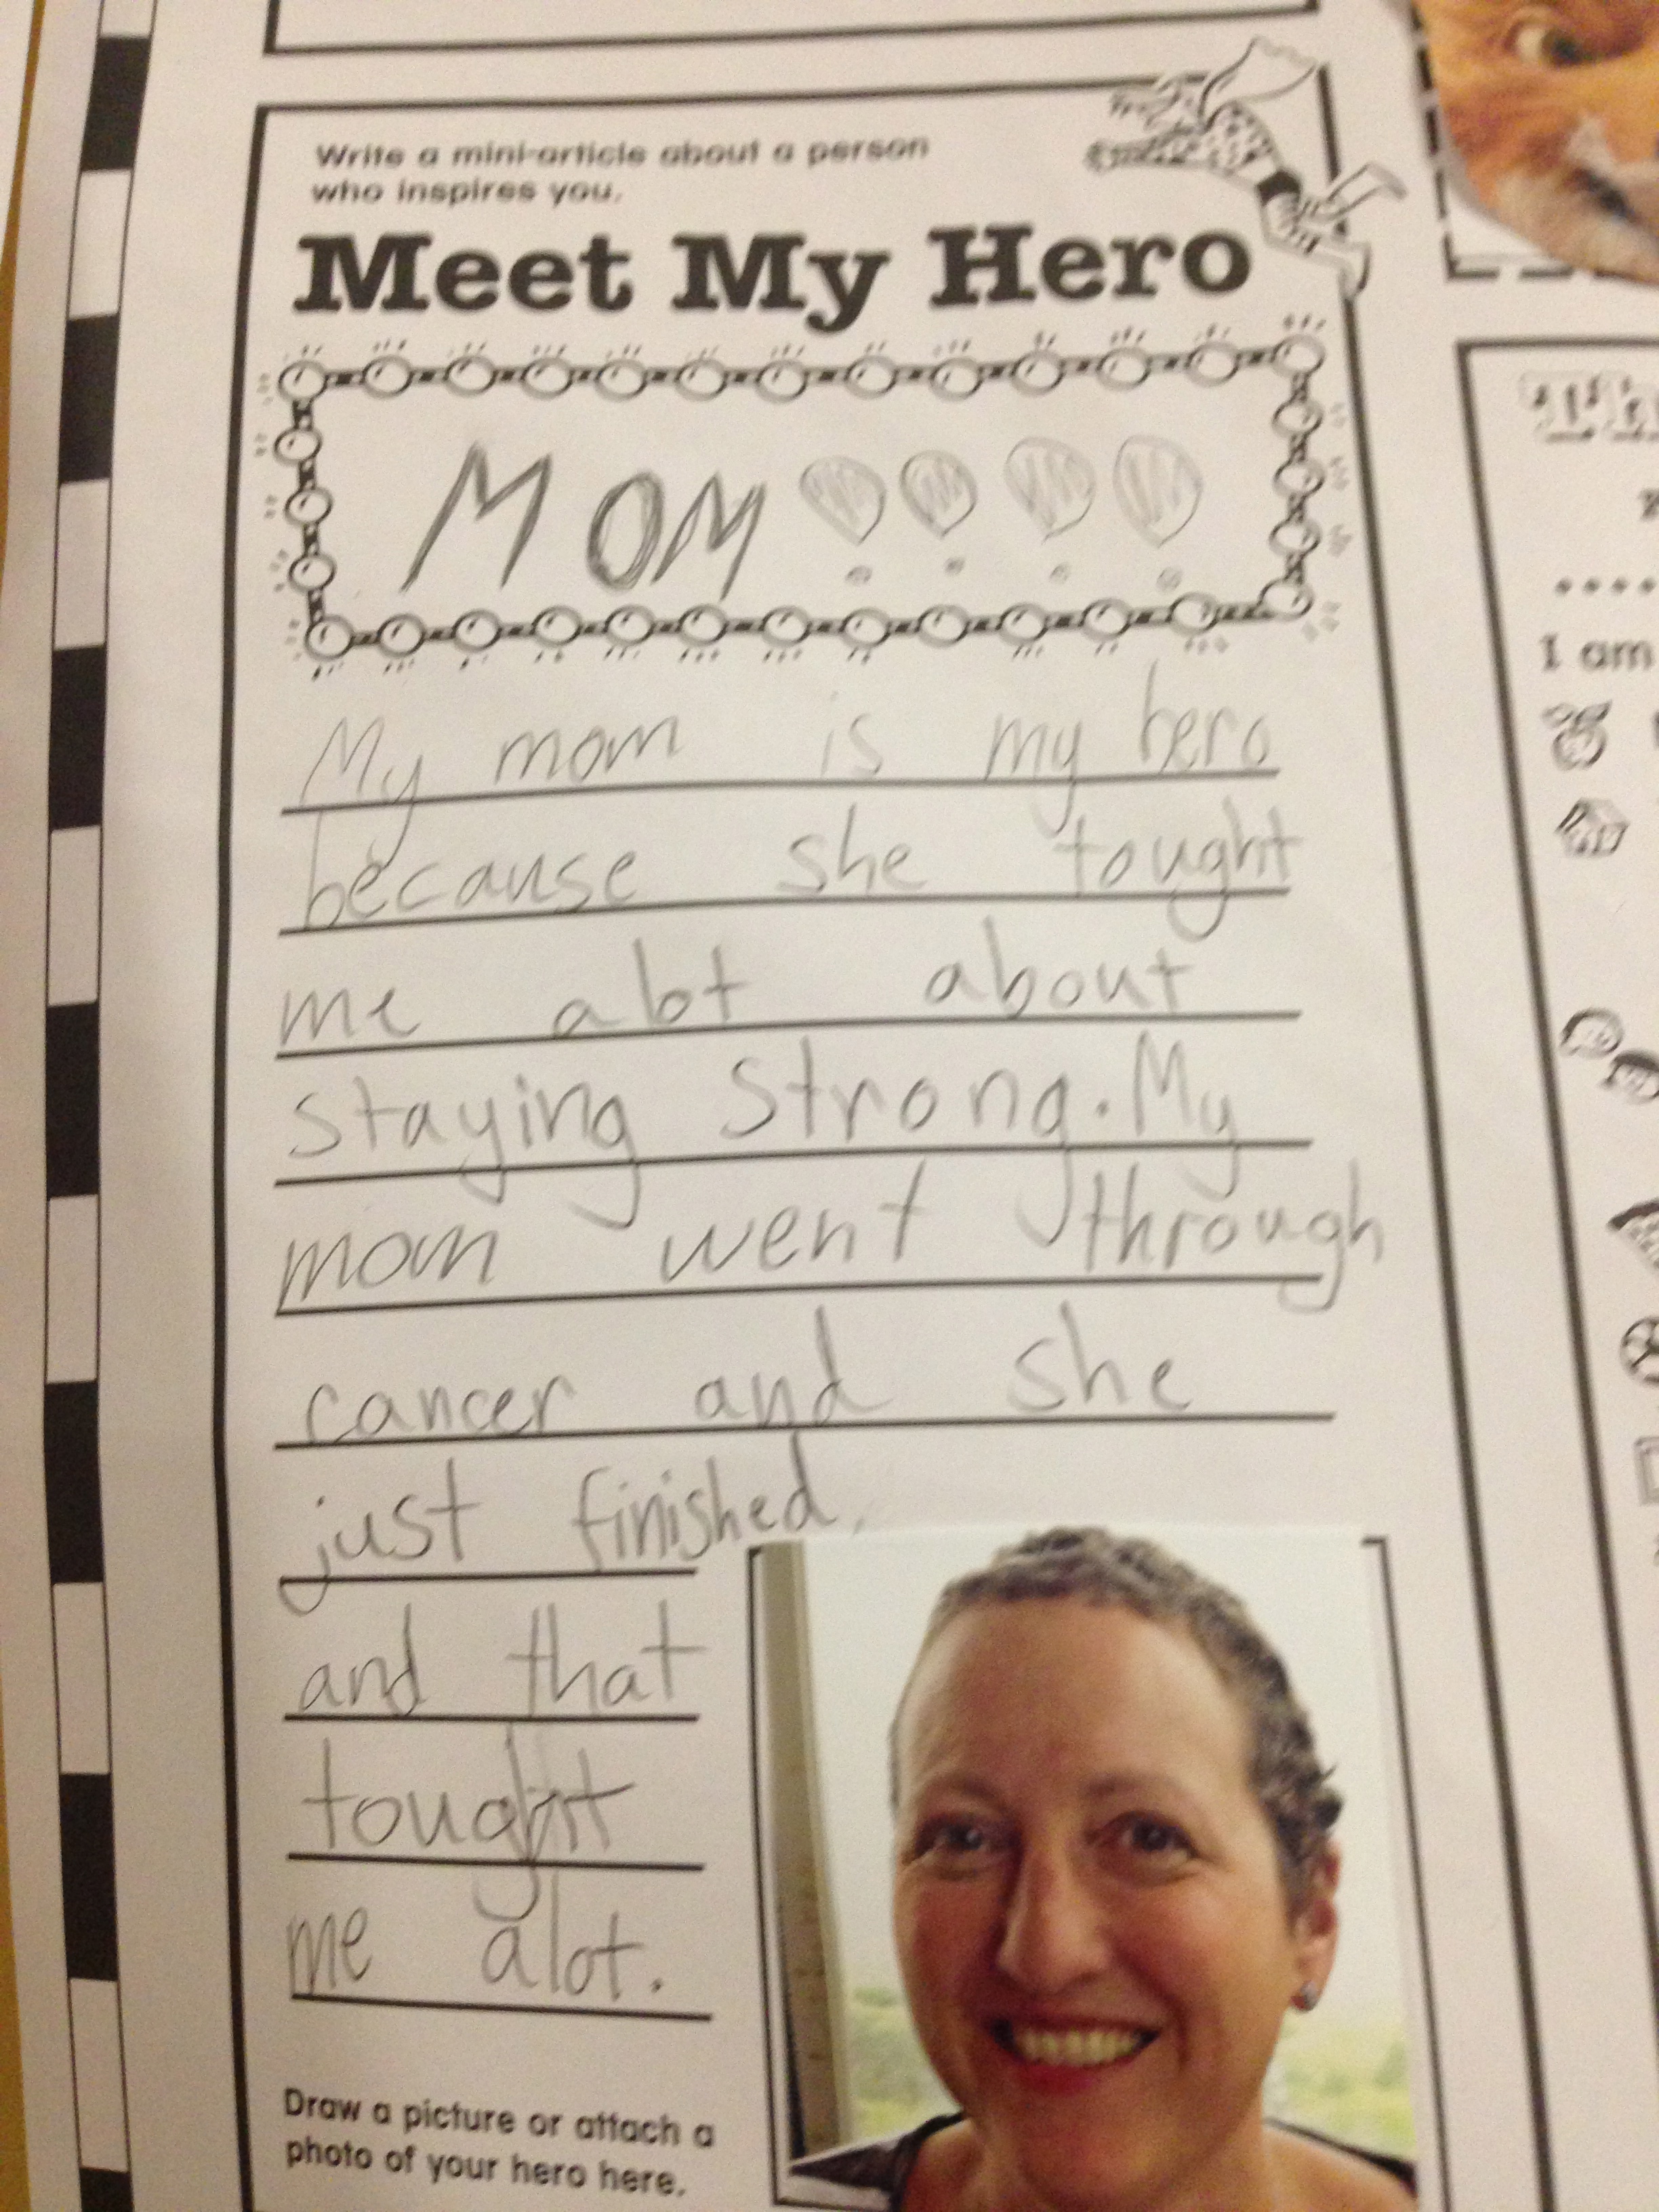 Write a mini-article about a person
who inspires you.
Meet My Hero
MOM
My mom is my hero
because she tought
me abt about
staying strong. My
mom went through
cancer and she
just finished,
and that
tought
me alot.
Draw a picture or attach a
photo of your hero here.
I am